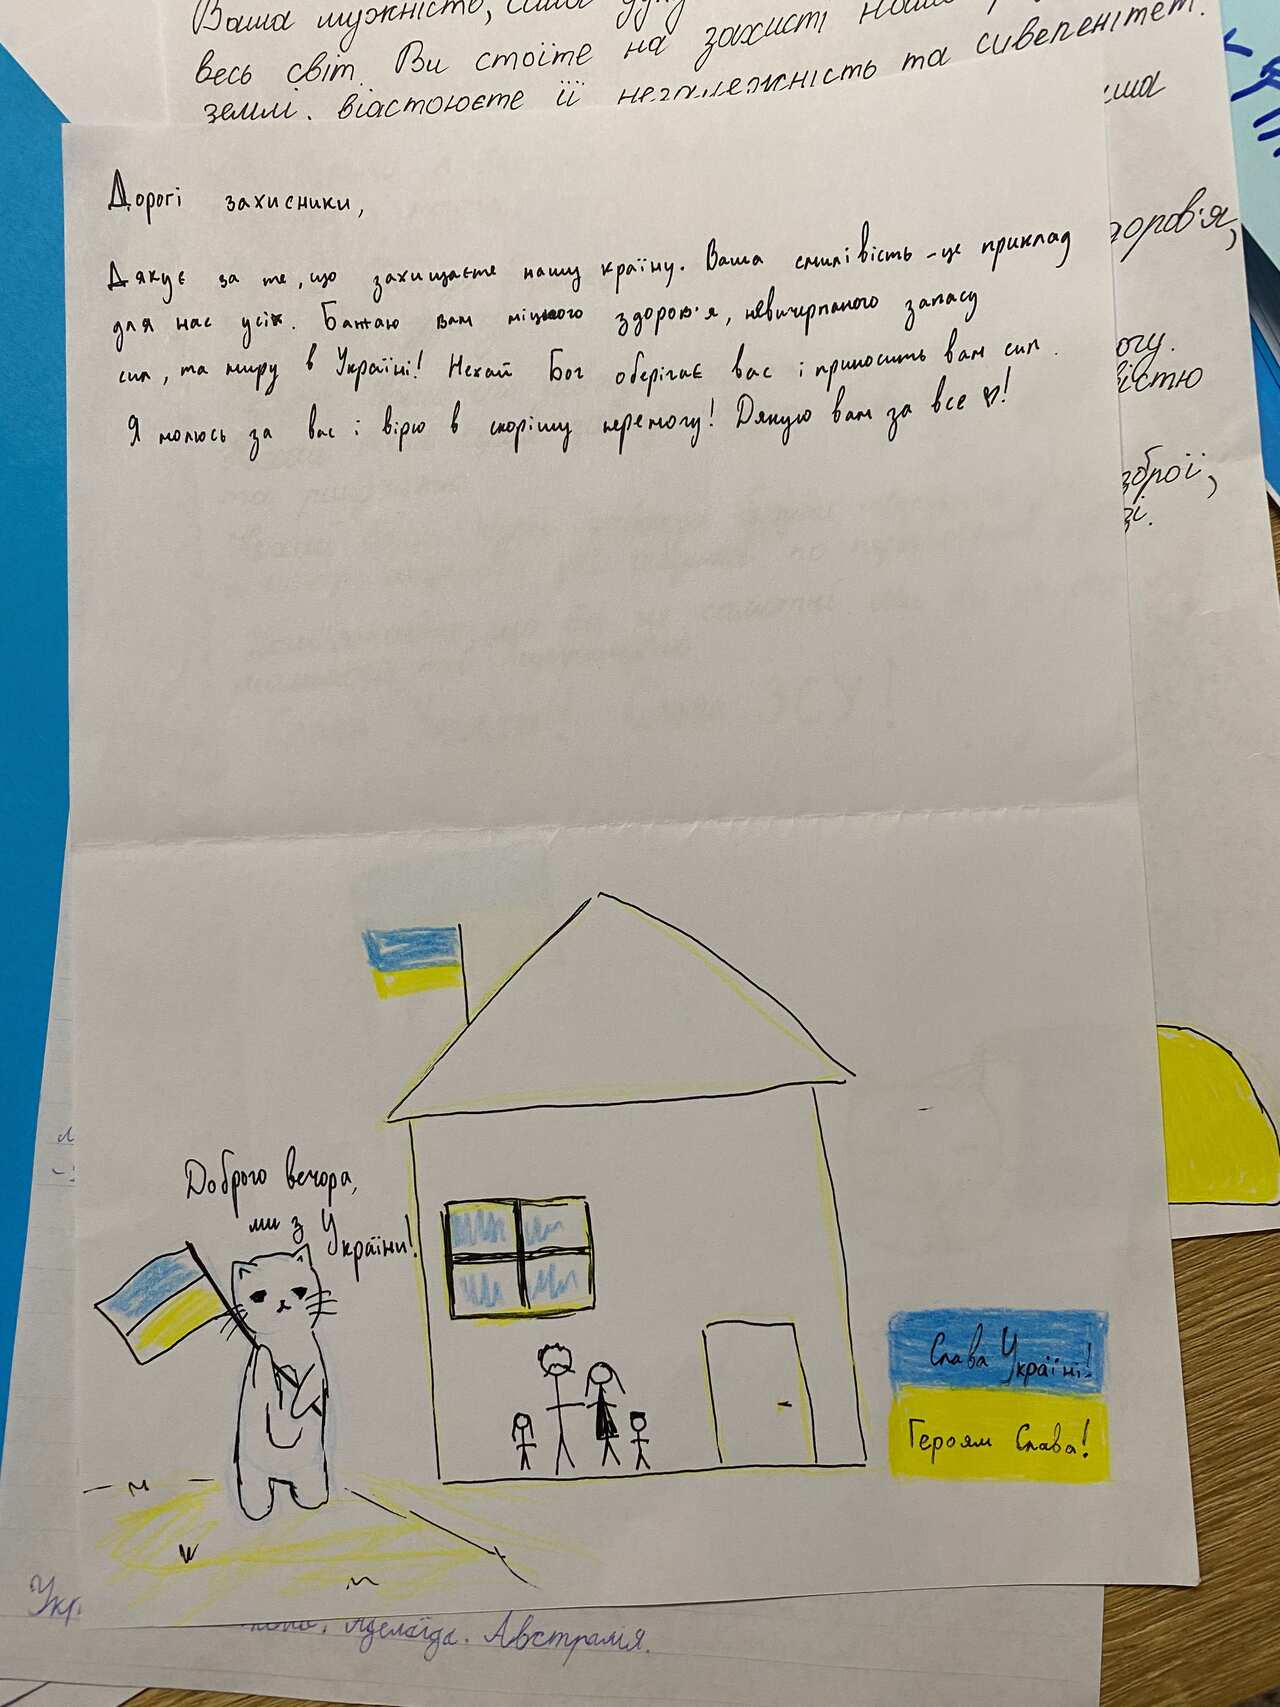 Ваша мужність,
весь світ. Ви стоїте на захисті
землі. відстоюєте її незалежність та сивепенітет.
доров'я,
огу.
вістю
зброї,
зі.
Дорогі захисники,
Дякує за те, що захищаєте нашу країну. Ваша смілівість - це приклад
для нас усіх. Бажаю вам міцього здоров'я, невичирпаного запасу
сил, та миру в Україні! Нехай Бог оберігає вас і приносить вам сил.
Я молюсь за вас і вірю в скорішу перемогу! Дякую вам за все ♡!
ЗСУ!
Доброго вечора,
ми з
України!
Слава Україні!
Героям Слава!
Укр
Аделаїда. Австралія.